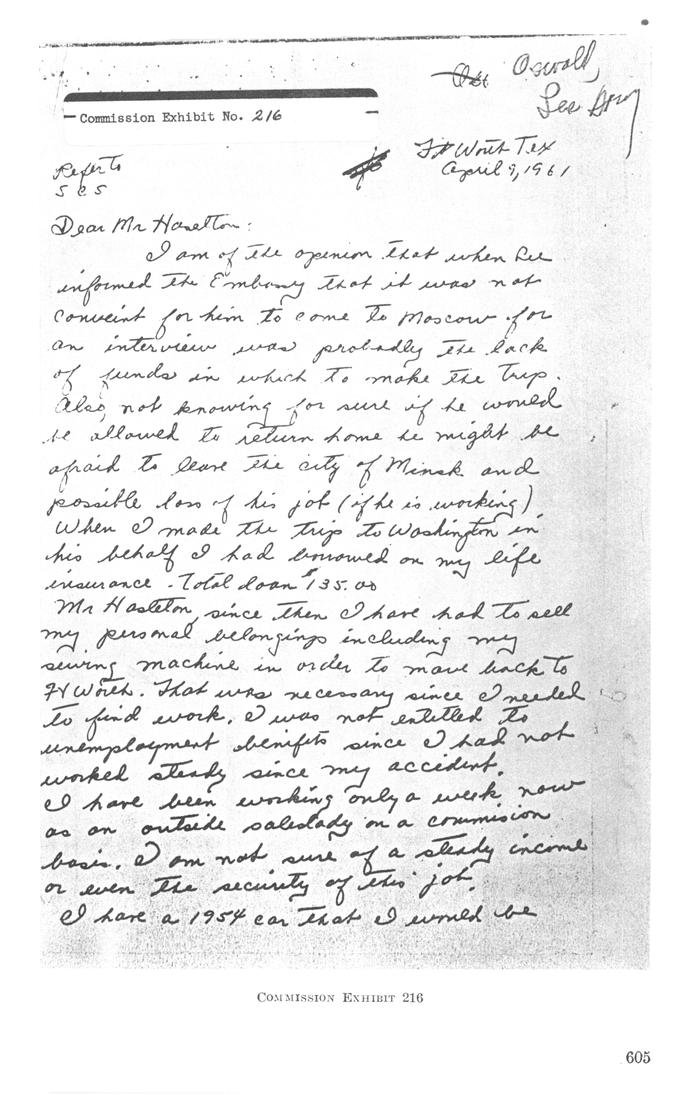 Oswald,
Lee
Commission Exhibit No. 216
Ft Worth Tex
April 9, 1961
Refer to
SCS
Dear Mr Haselton:
I am of the opinion that when Lee
informed the Embassy that it was not
conveint for him to come to Moscow for
an interview was probadly the lack
of funds in which to make the trip.
Also, not knowing for sure if he would
be allowed to return home he might be
afraid to leave the city of Minsk and
possible loss of his job (if he is working)
When I made the trip to Washington in
his behalf I had borrowed on my life
insurance - Total loan $135.00
Mr Haselton, since then I have had to sell
my personal belongings including my
sewing machine in order to move back to
Ft Worth. That was necessary since I needed
to find work. I was not entitled to
unemployment benifits since I had not
worked steady since my accident.
I have been working only a week now
as an outside saleslady on a commision
basis. I am not sure of a steady income
or even the security of this job.
I have a 1954 car that I would be
COMMISSION EXHIBIT 216
605